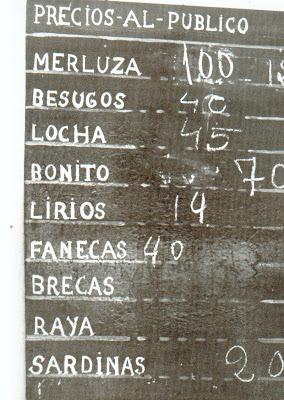 PRECIOS-AL-PUBLICO
MERLUZA 100
BESUGOS 40
LOCHA 45
BONITO 70
LIRIOS 14
FANECAS 40
BRECAS
RAYA
SARDINAS 20